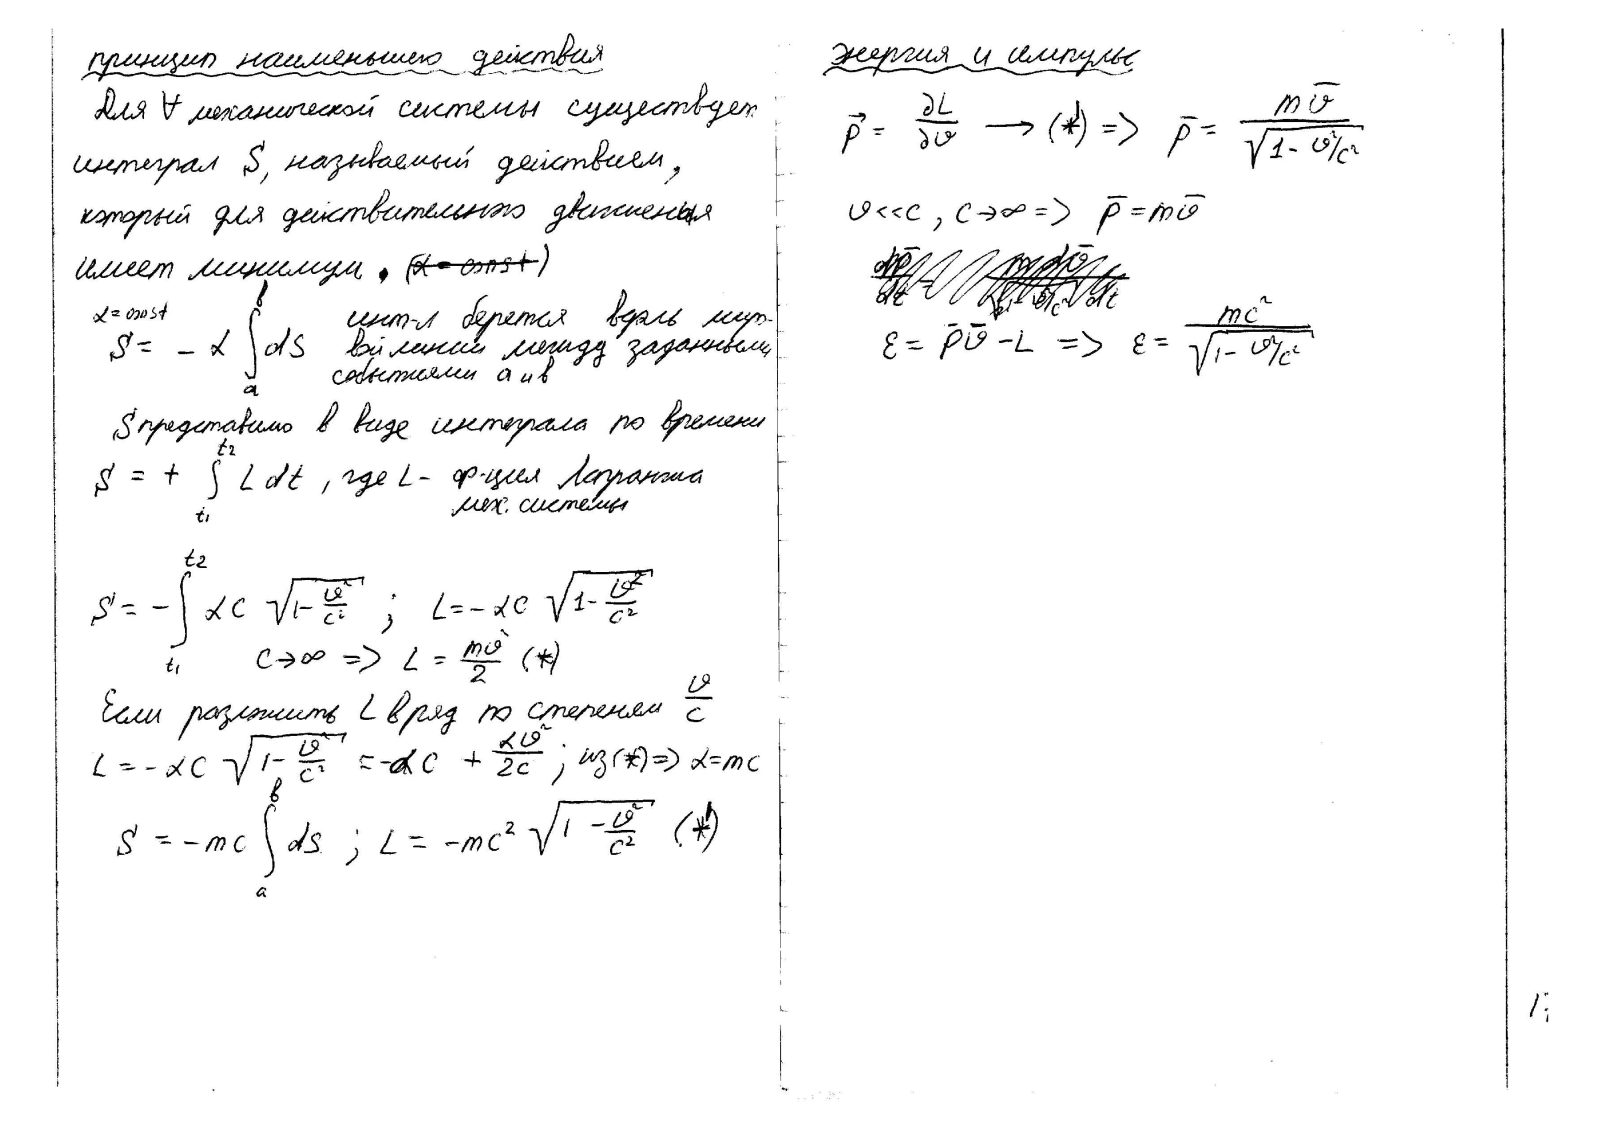 принцип наименьшего действия
Для ∀ механической системы существует
интеграл S, называемый действием,
который для действительного движения
имеет минимум. (α = const)
α = const
S = - α ∫ₐᵇ ds инт-л берется вдоль миро-
вой линии между заданными
событиями a и b
S представимо в виде интеграла по времени
S = + ∫ₜ₁ᵗ² L dt, где L - ф-ция Лагранжа
мех. системы
S = - ∫ₜ₁ᵗ² αc √(1 - v²/c²) ; L = - αc √(1 - v²/c²)
c → ∞ => L = mv²/2 (*)
Если разложить L в ряд по степеням v/c
L = - αc √(1 - v²/c²) = -αc + αv²/2c ; из (*) => α = mc
S = - mc ∫ₐᵇ ds ; L = - mc² √(1 - v²/c²) (*')
энергия и импульс
p⃗ = ∂L/∂v → (*') => p̄ = mv̄/√(1 - v²/c²)
v << c, c → ∞ => p̄ = mv̄
ε = p̄v̄ - L => ε = mc²/√(1 - v²/c²)